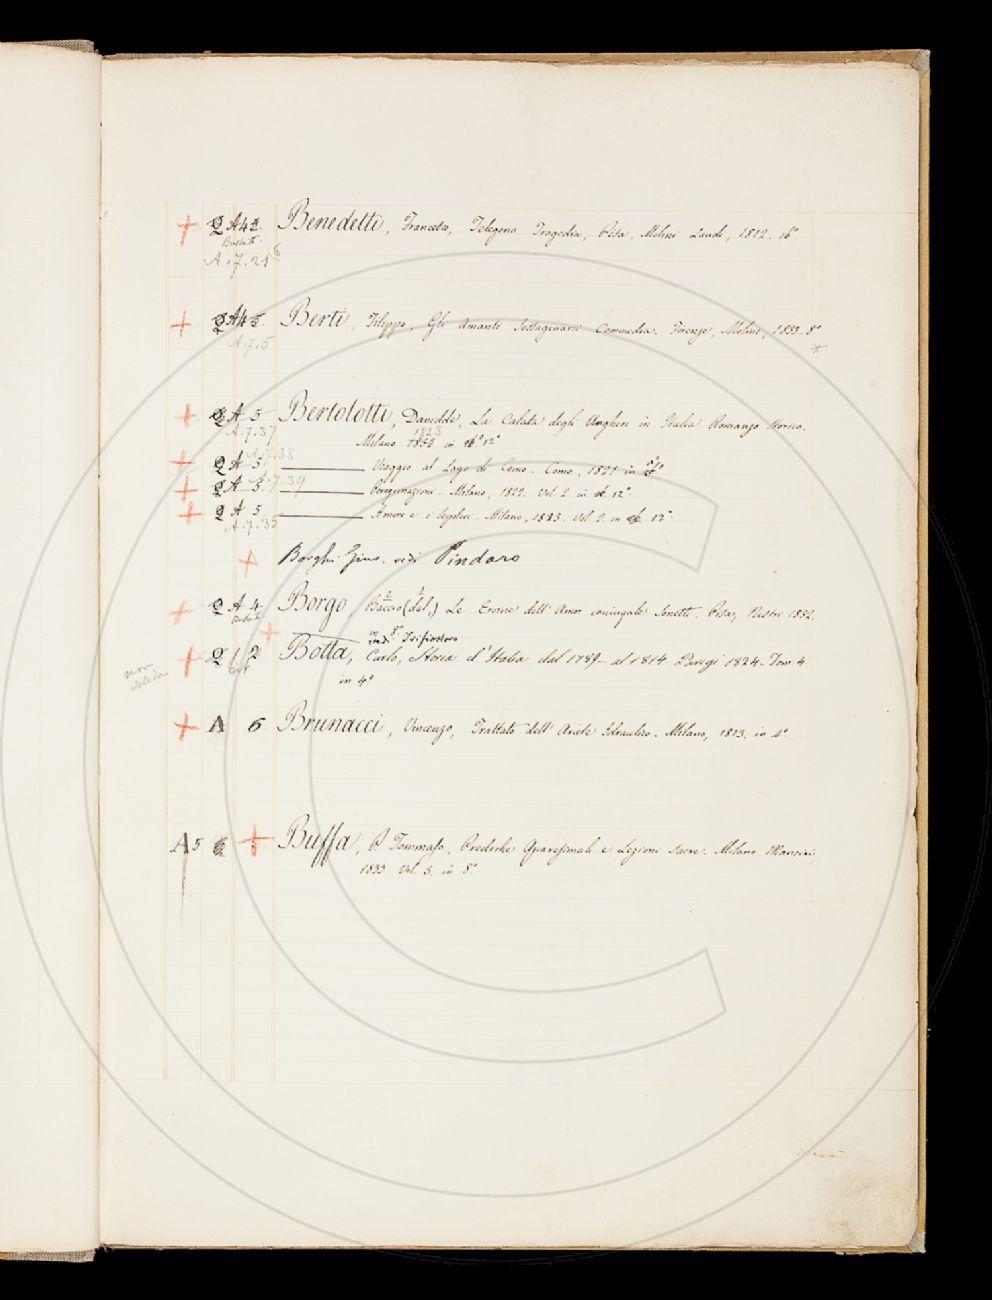 + Q A 4 Benedetti, Francesco, Telegono Tragedia, Pisa, Molini Landi, 1812. 16°
Busta
A.7.21
+ Q A 4 Berti, Filippo, Gli Amanti Sessagenarii Commedia. Firenze, Molini, 1833. 8°
A.7.5
+ Q A 5 Bertolotti, Davidde, La Calata degli Ungheri in Italia Romanzo Storico.
A.7.37
Milano 1823 in 12°
A.7.38
+ Q A 5 ——— Viaggio al Lago di Como. Como, 1821 in 8°
A.7.39
+ Q A 5 ——— Peregrinazioni. Milano, 1822. Vol. 2. in 12°
+ Q A 5 ——— Amore e i Sepolcri. Milano, 1823. Vol. 2. in 12°
A.7.35
+ Borghi Gius. vedi Pindaro
+ Q A 4 Borgo, Baccio (dal) Le Erome dell'Amor coniugale Sonetti. Pisa, Nistri 1832.
in 8°
+ Q 2 Botta, Carlo, Storia d'Italia dal 1789 al 1814. Parigi 1824. Tom. 4
non
in 4°
+ A 6 Brunacci, Vincenzo, Trattato dell'Ariete Idraulico. Milano, 1813. in 4°
A 5 + Buffa, P. Tommaso, Prediche Quaresimali e Lezioni Sacre. Milano
1833 Vol. 5. in 8°
C